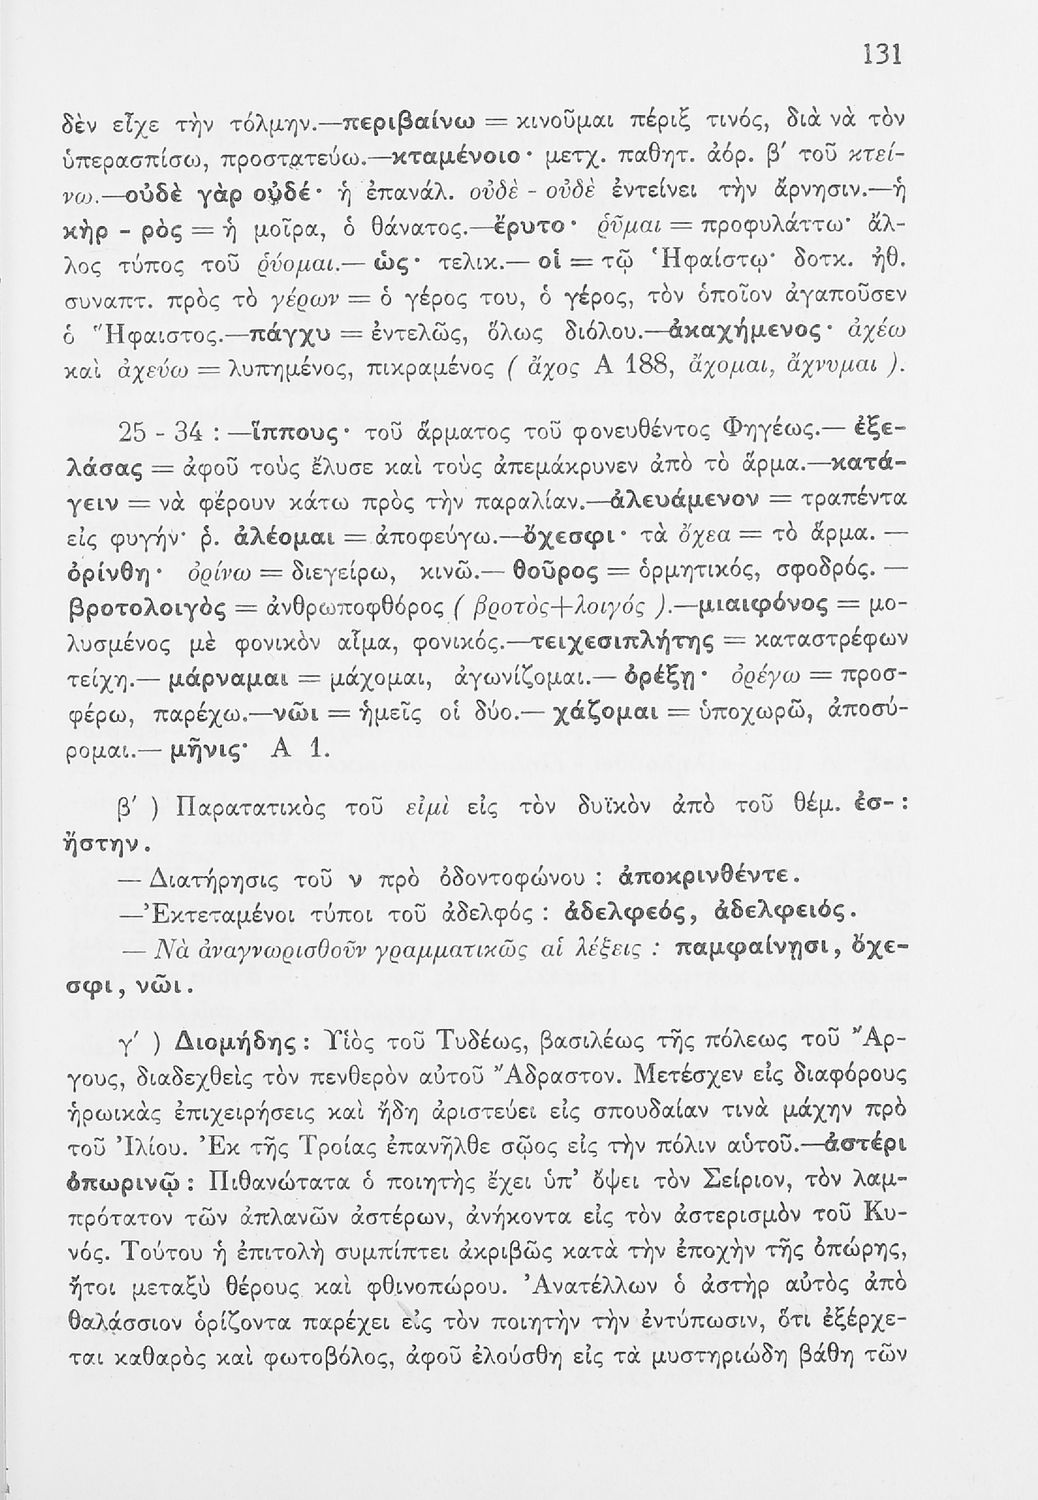 131
δὲν εἶχε τὴν τόλμην.—περιβαίνω = κινοῦμαι πέριξ τινός, διὰ νὰ τὸν
ὑπερασπίσω, προστατεύω.—κταμένοιο· μετχ. παθητ. ἀόρ. β' τοῦ κτεί-
νω.—οὐδὲ γὰρ οὐδέ· ἡ ἐπανάλ. οὐδὲ - οὐδὲ ἐντείνει τὴν ἄρνησιν.—ἡ
κὴρ - ρὸς = ἡ μοῖρα, ὁ θάνατος.—ἔρυτο· ῥῦμαι = προφυλάττω· ἄλ-
λος τύπος τοῦ ῥύομαι.— ὡς· τελικ.— οἱ = τῷ Ἡφαίστῳ· δοτκ. ἠθ.
συναπτ. πρὸς τὸ γέρων = ὁ γέρος του, ὁ γέρος, τὸν ὁποῖον ἀγαποῦσεν
ὁ Ἥφαιστος.—πάγχυ = ἐντελῶς, ὅλως διόλου.—ἀκαχήμενος· ἀχέω
καὶ ἀχεύω = λυπημένος, πικραμένος ( ἄχος Α 188, ἄχομαι, ἄχνυμαι ).
25 - 34 : —ἵππους· τοῦ ἅρματος τοῦ φονευθέντος Φηγέως.— ἐξε-
λάσας = ἀφοῦ τοὺς ἔλυσε καὶ τοὺς ἀπεμάκρυνεν ἀπὸ τὸ ἅρμα.—κατά-
γειν = νὰ φέρουν κάτω πρὸς τὴν παραλίαν.—ἀλευάμενον = τραπέντα
εἰς φυγήν· ῥ. ἀλέομαι = ἀποφεύγω.—ὄχεσφι· τὰ ὄχεα = τὸ ἅρμα. —
ὀρίνθη· ὀρίνω = διεγείρω, κινῶ.— θοῦρος = ὁρμητικός, σφοδρός. —
βροτολοιγὸς = ἀνθρωποφθόρος ( βροτὸς+λοιγός ).—μιαιφόνος = μο-
λυσμένος μὲ φονικὸν αἷμα, φονικός.—τειχεσιπλήτης = καταστρέφων
τείχη.— μάρναμαι = μάχομαι, ἀγωνίζομαι.— ὀρέξῃ· ὀρέγω = προσ-
φέρω, παρέχω.—νῶι = ἡμεῖς οἱ δύο.— χάζομαι = ὑποχωρῶ, ἀποσύ-
ρομαι.— μῆνις· Α 1.
β' ) Παρατατικὸς τοῦ εἰμὶ εἰς τὸν δυϊκὸν ἀπὸ τοῦ θέμ. ἐσ- :
ἤστην.
— Διατήρησις τοῦ ν πρὸ ὀδοντοφώνου : ἀποκρινθέντε.
—Ἐκτεταμένοι τύποι τοῦ ἀδελφός : ἀδελφεός, ἀδελφειός.
— Νὰ ἀναγνωρισθοῦν γραμματικῶς αἱ λέξεις : παμφαίνῃσι, ὄχε-
σφι, νῶι.
γ' ) Διομήδης : Υἱὸς τοῦ Τυδέως, βασιλέως τῆς πόλεως τοῦ Ἄρ-
γους, διαδεχθεὶς τὸν πενθερὸν αὐτοῦ Ἄδραστον. Μετέσχεν εἰς διαφόρους
ἡρωικὰς ἐπιχειρήσεις καὶ ἤδη ἀριστεύει εἰς σπουδαίαν τινὰ μάχην πρὸ
τοῦ Ἰλίου. Ἐκ τῆς Τροίας ἐπανῆλθε σῷος εἰς τὴν πόλιν αὑτοῦ.—ἀστέρι
ὀπωρινῷ : Πιθανώτατα ὁ ποιητὴς ἔχει ὑπ' ὄψει τὸν Σείριον, τὸν λαμ-
πρότατον τῶν ἀπλανῶν ἀστέρων, ἀνήκοντα εἰς τὸν ἀστερισμὸν τοῦ Κυ-
νός. Τούτου ἡ ἐπιτολὴ συμπίπτει ἀκριβῶς κατὰ τὴν ἐποχὴν τῆς ὀπώρης,
ἤτοι μεταξὺ θέρους καὶ φθινοπώρου. Ἀνατέλλων ὁ ἀστὴρ αὐτὸς ἀπὸ
θαλάσσιον ὁρίζοντα παρέχει εἰς τὸν ποιητὴν τὴν ἐντύπωσιν, ὅτι ἐξέρχε-
ται καθαρὸς καὶ φωτοβόλος, ἀφοῦ ἐλούσθη εἰς τὰ μυστηριώδη βάθη τῶν